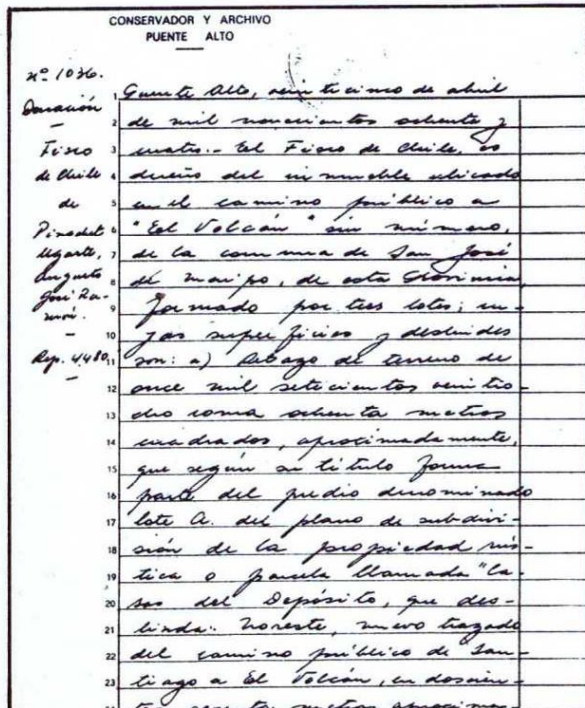 CONSERVADOR Y ARCHIVO
PUENTE ALTO
nº 1036.
Donación
Fisco
de Chile
de
Pinochet
Ugarte,
Augusto
José Ra-
món.
Rep. 4480
1 Puente Alto, veinticinco de abril
2 de mil novecientos ochenta y
3 cuatro.- El Fisco de Chile, es
4 dueño del inmueble ubicado
5 en el camino público a
6 "El Volcán" sin número,
7 de la comuna de San José
8 de Maipo, de esta Provincia,
9 formado por tres lotes; cu-
10 yas superficies y deslindes
11 son: a) Retazo de terreno de
12 once mil setecientos veintio-
13 cho coma ochenta metros
14 cuadrados, aproximadamente,
15 que según su título forma
16 parte del predio denominado
17 lote A. del plano de subdivi-
18 sión de la propiedad rús-
19 tica o parcela llamada "Ca-
20 sas del Depósito, que des-
21 linda: Noreste, nuevo trazado
22 del camino público de San-
23 tiago a El Volcán, en doscien-
metros aproxima-